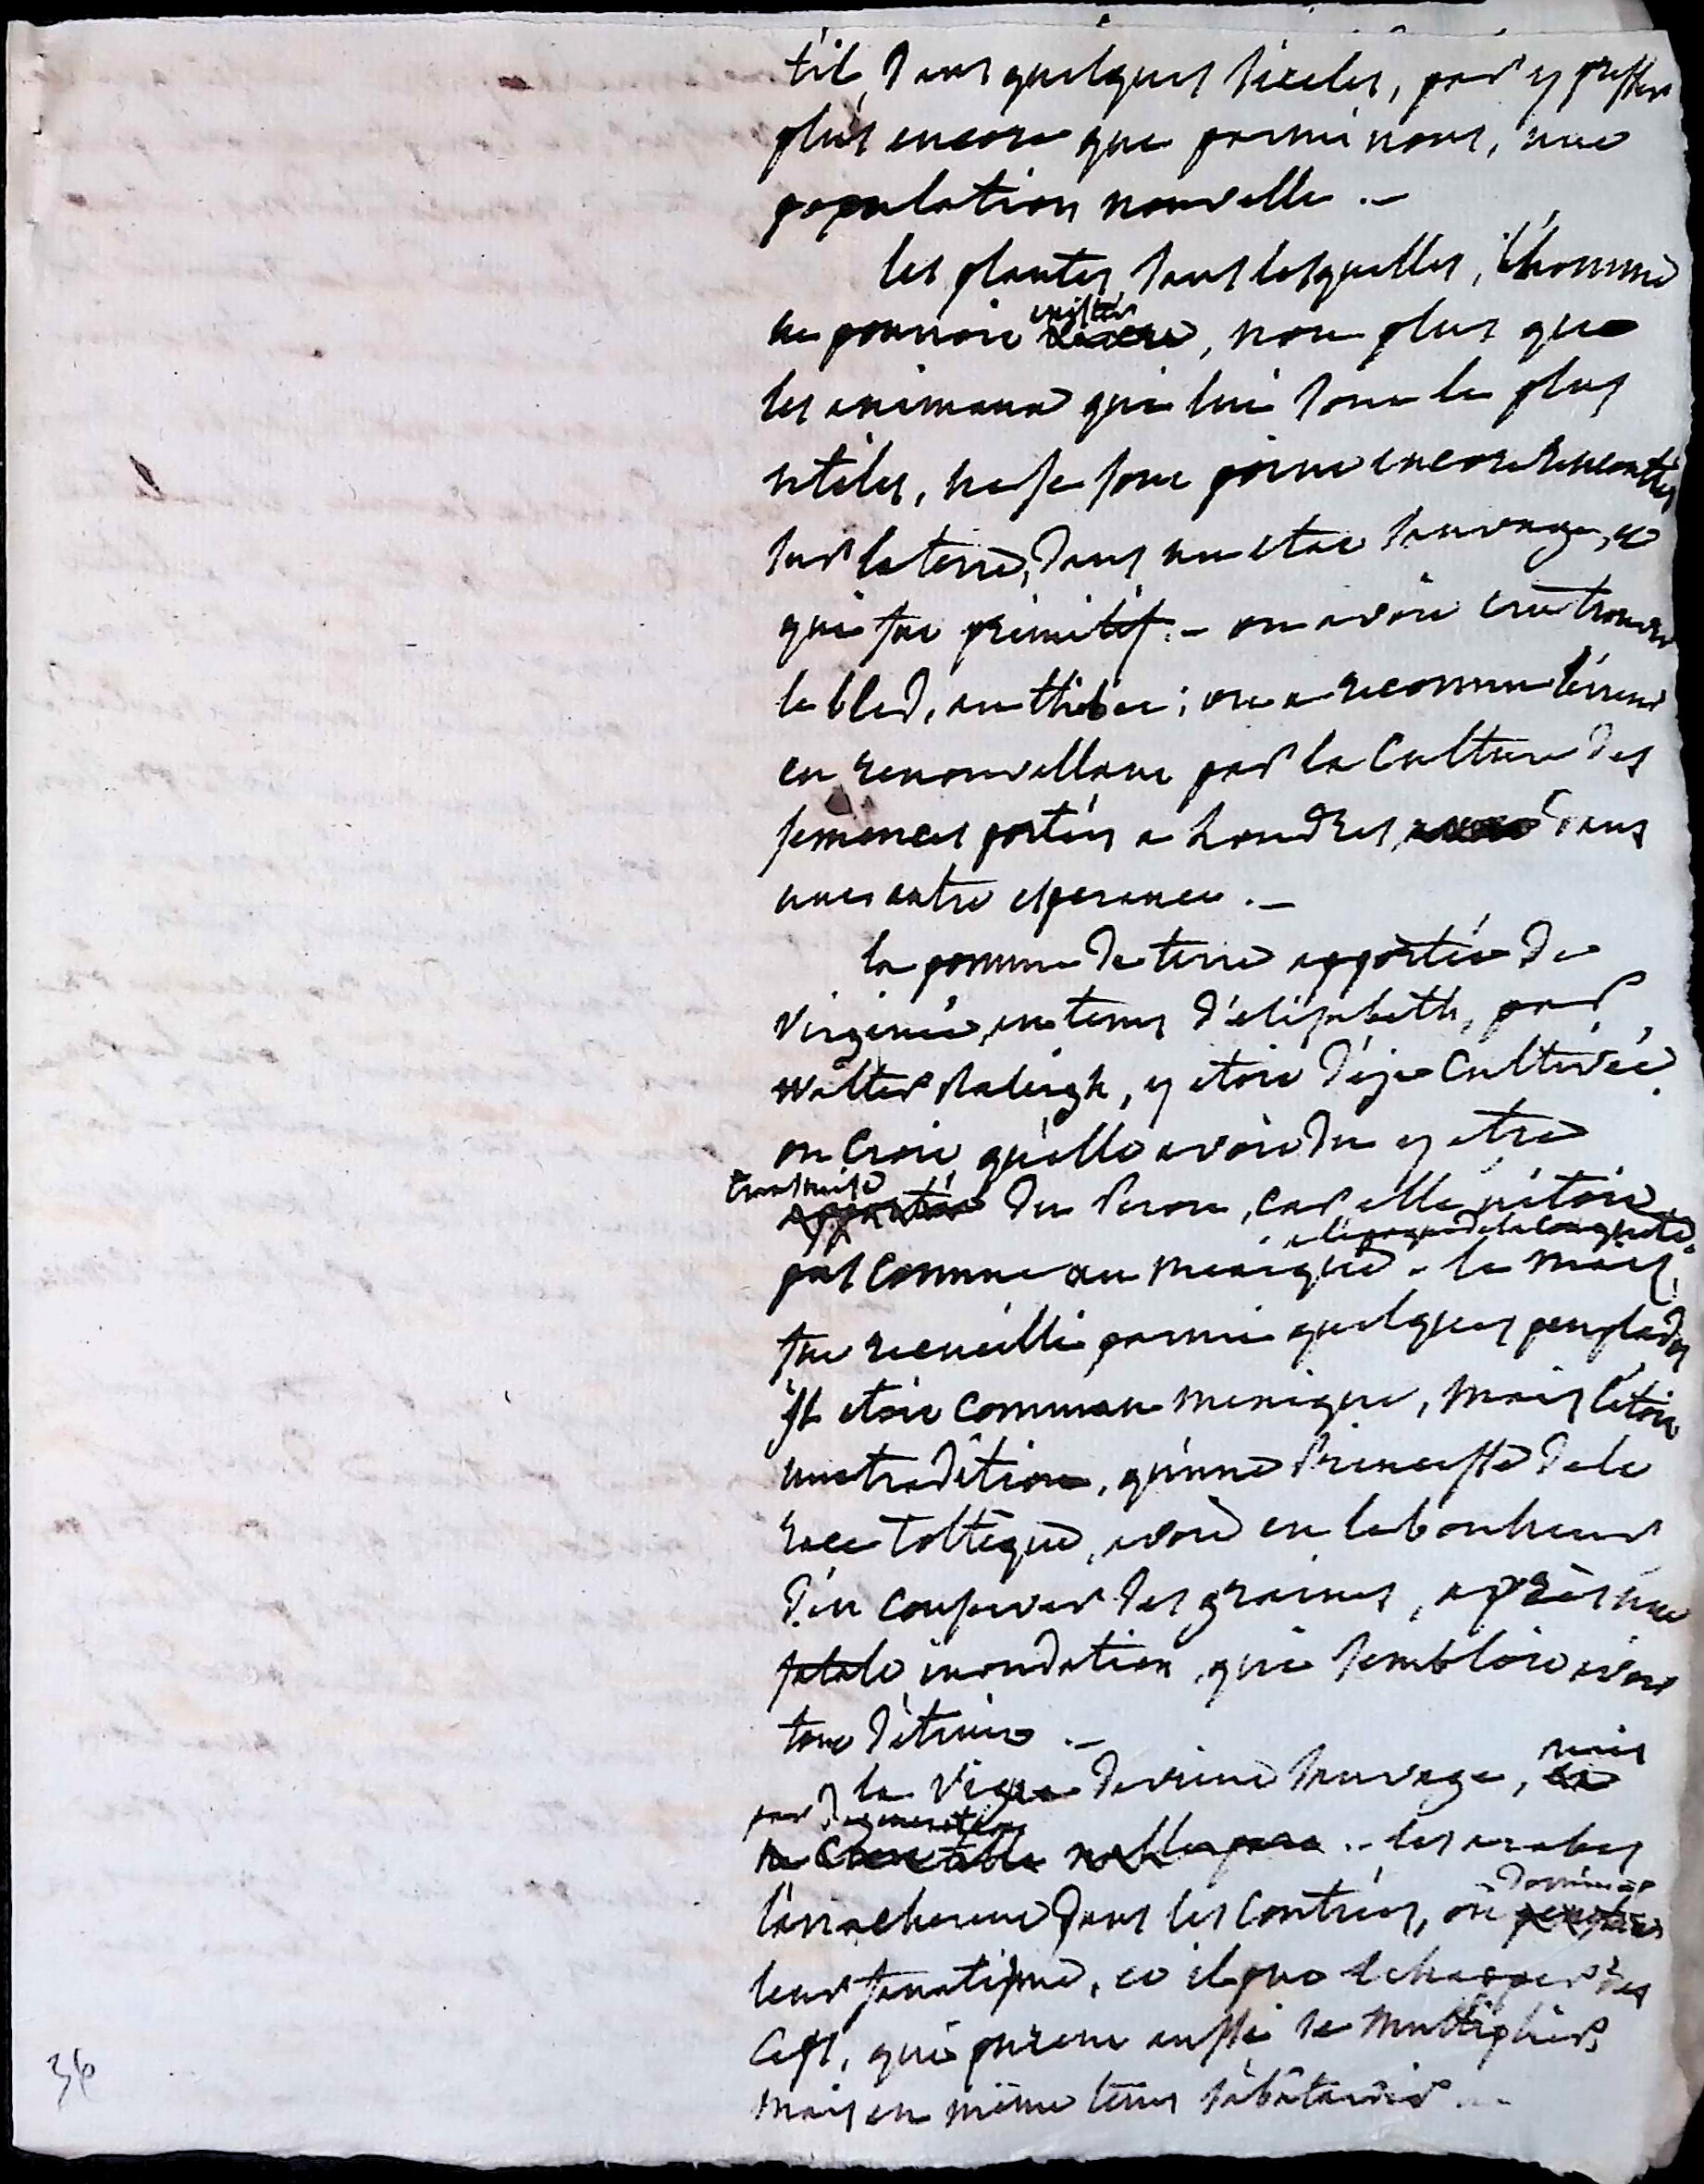 t'il, dans quelques siecles, par y presser
plus encore que parmi nous, une
population nouvelle. –
les plantes, sans lesquelles, l'homme
ne pouvoit exister, non plus que
les animaux qui lui sont le plus
utiles, ne se sont point encore rencontrés
sur la terre, dans un etat sauvage, et
qui fut primitif. – on avoit cru trouver
le bled, au thibet; on a reconnu l'erreur
en renouvellant par la culture des
semences portées a Londres, dans
une autre esperance. –
la pomme de terre apportée de
Virginie, au tems d'elisabeth, par
Walter Raleigh, y etoit déja cultivée.
on croit qu'elle avoit du y etre
transmise
apportée du Perou, car elle n'étoit
a l'epoque de la conquete
pas connue au mexique. le mais,
fut recueilli parmi quelques peuplades
il etoit commun au mexique, mais c'étoit
une tradition, qu'une Princesse de la
race Toltèque, avoit eu le bonheur
d'en conserver des graines, après une
fatale inondation, qui sembloit avoir
tout détruit. –
la vigne devient sauvage, mais
par degeneration
les arabes
l'arracherent dans les contrées, où domina
leur fanatisme, et il put echapper des
ceps, qui purent aussi se multiplier,
mais en même tems s'abâtardir. –
36